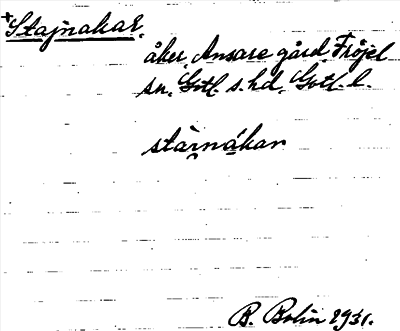 ×Stajnakar.
åker, Ansare gård, Fröjel
sn, Gotl. s. hd, Gotl. l.
stàrnákar
B. Bolin 1931.